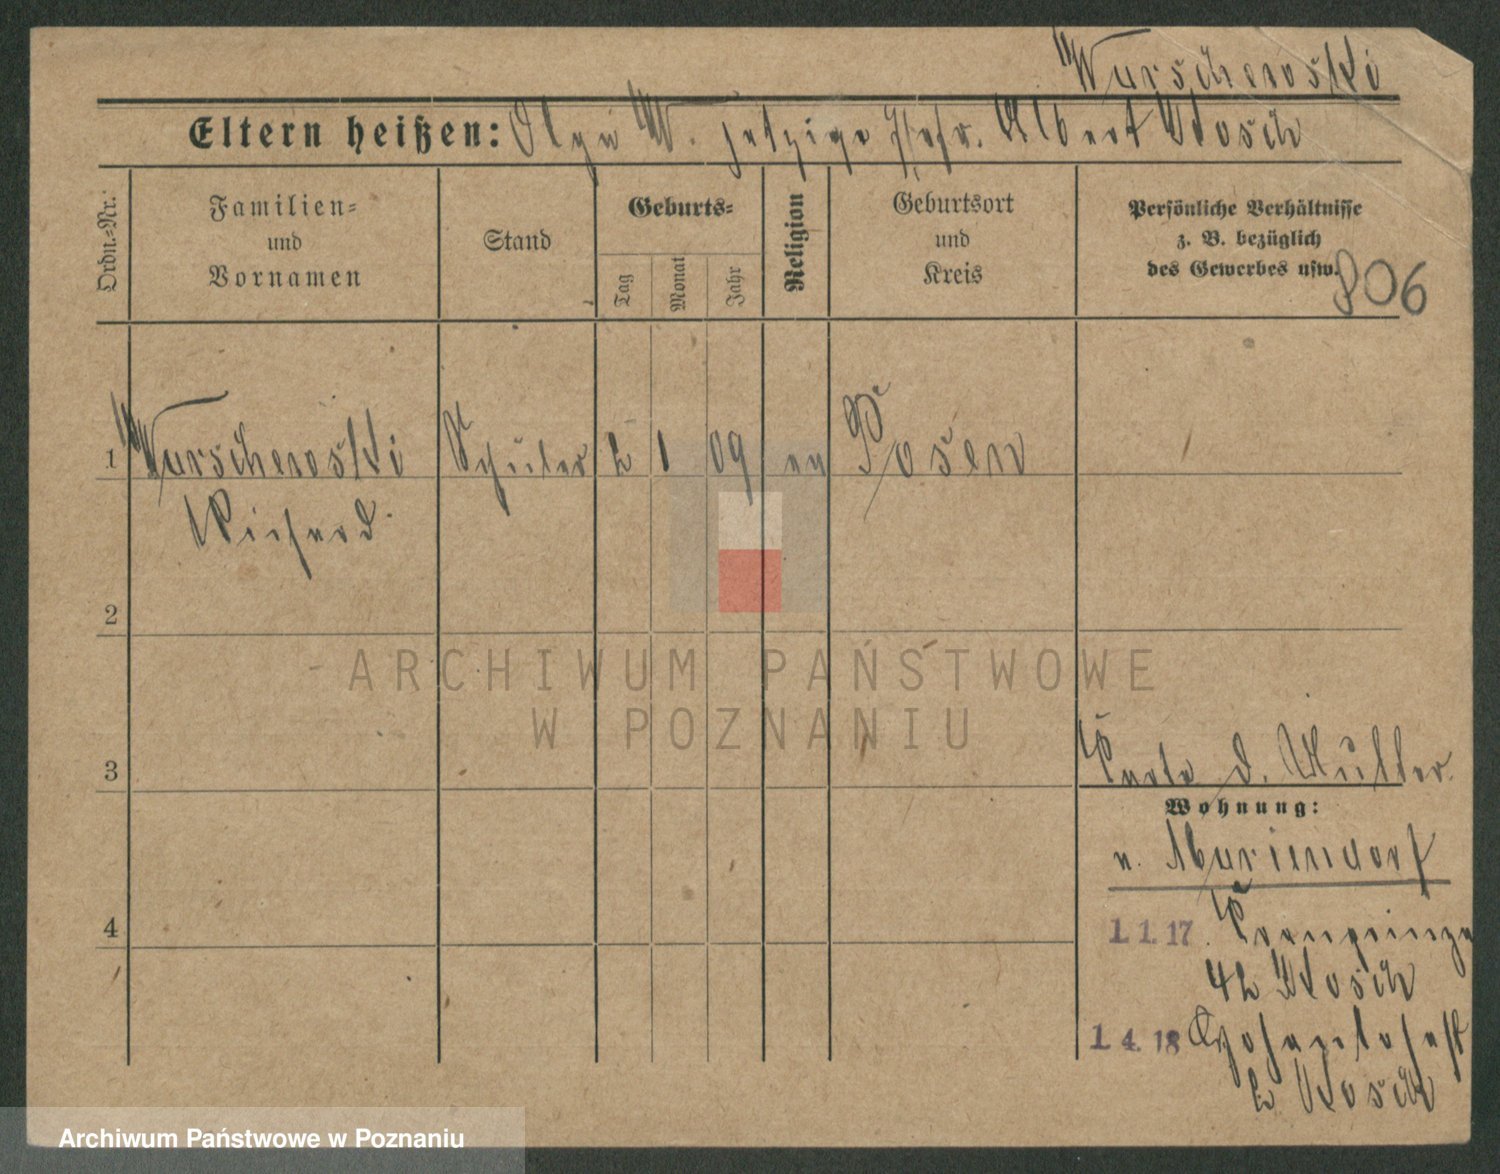 Wurschewski
Eltern heißen: Olga W. jetzige Albert Klosch
Ordn.-Nr.
Familien-
und
Vornamen
Stand
Geburts-
Tag
Monat
Jahr
Religion
Geburtsort
und
Kreis
Persönliche Verhältnisse
z. B. bezüglich
des Gewerbes usw.
806
1 Wurschewski Schüler 2 1 09 ev Posen
Richard
2
ARCHIWUM PAŃSTWOWE
W POZNANIU
3
Karte d. Mutter
Wohnung:
n. Mariendorf
4
1.1.17 Kronprinz
42 Klosch
1.4.18
2 Klosch
Archiwum Państwowe w Poznaniu